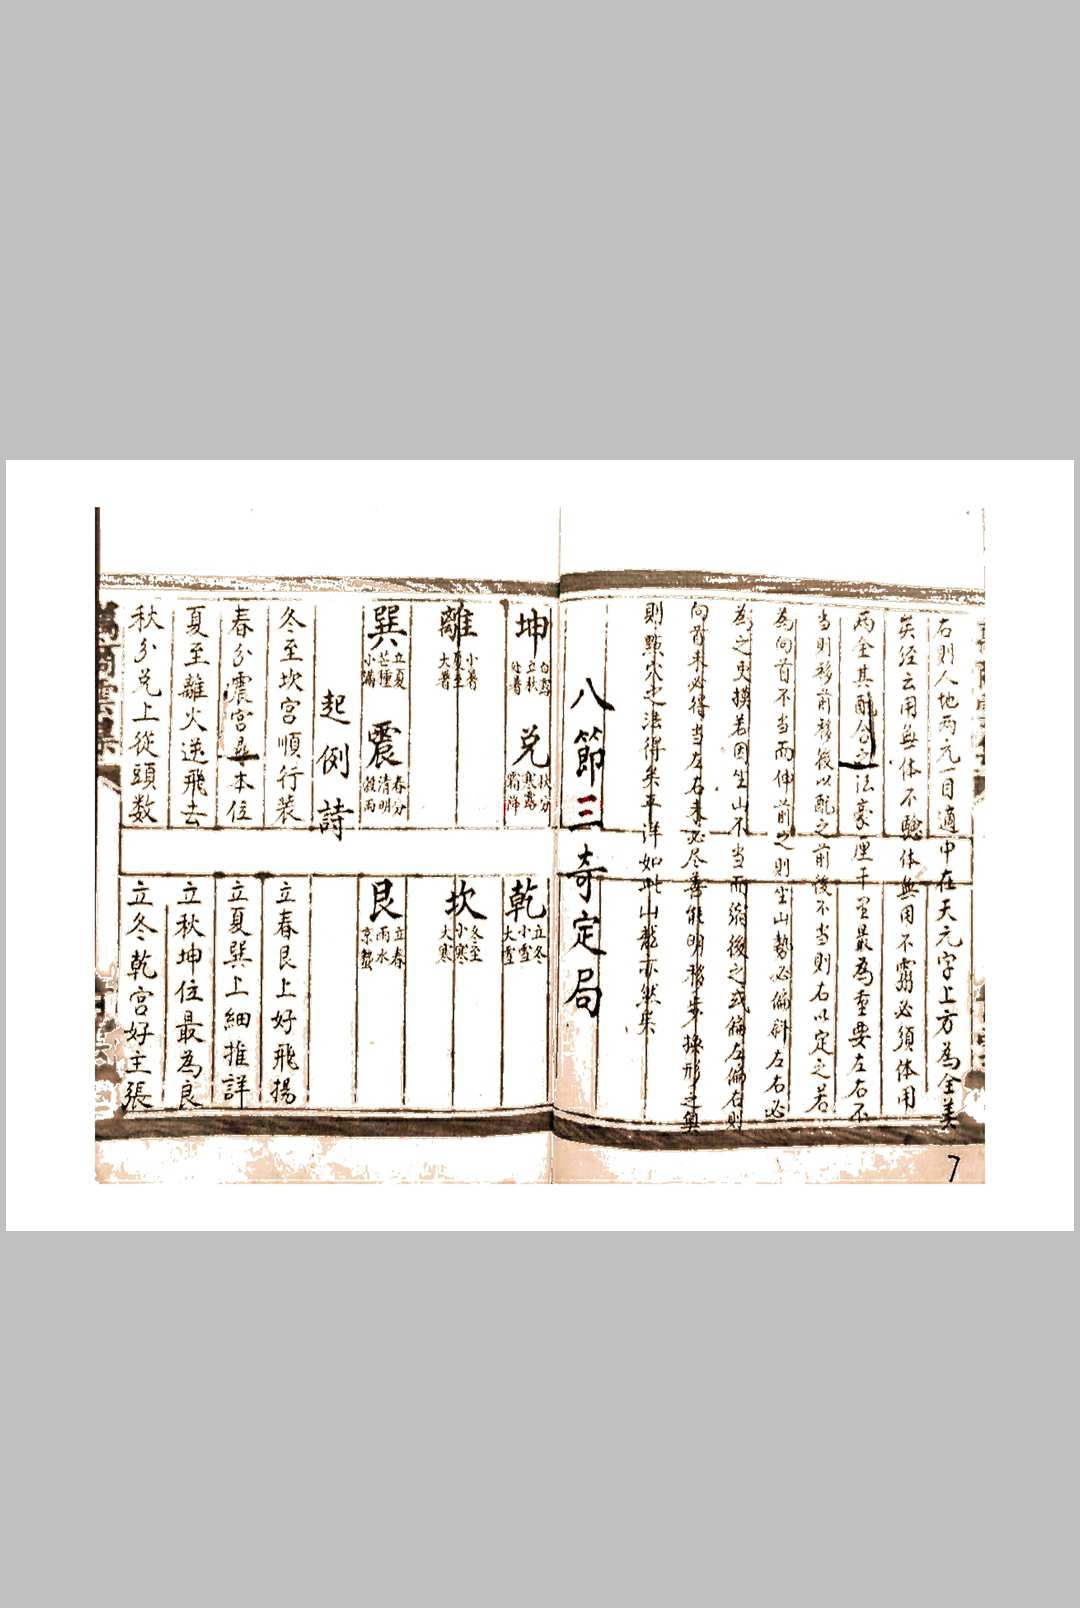 右則人地兩元一目適中在天元字上方為全美
矣经云用無体不驗体無用不霛必須体用
两全其配合之法豪厘干里最為重要左右不
当則移前移後以配之前後不当則右以定之若
為向首不当而伸前之則坐山勢必偏斜左右必
為之更摸若因坐山不当而縮後之或偏左偏右則
向首来必得当左右未必尽善能明移步換形之奥
則點穴之法得矣平洋如此山龍亦然矣
八節三奇定局
坤
白露
立秋
处暑
兌
秋分
寒露
霜降
乾
立冬
小雪
大雪
離
小暑
夏至
大暑
坎
冬至
小寒
大寒
巽
立夏
芒種
小滿
震
春分
清明
穀雨
艮
立春
雨水
京蟄
起例詩
冬至坎宮順行装 立春艮上好飛揚
春分震宮尋本位 立夏巽上細推詳
夏至離火逆飛去 立秋坤位最為良
秋分兌上從頭数 立冬乾宮好主張
7